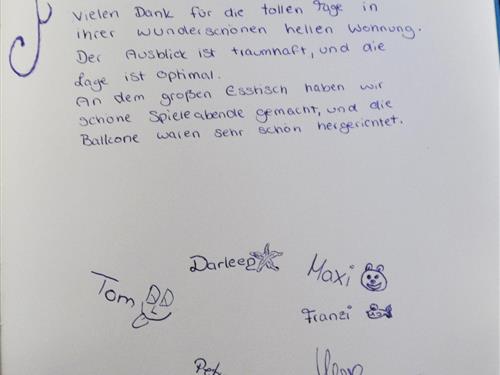 Vielen Dank für die tollen Tage in
ihrer wunderschönen hellen Wohnung.
Der Ausblick ist traumhaft, und die
Lage ist optimal.
An dem großen Esstisch haben wir
schöne Spieleabende gemacht, und die
Balkone waren sehr schön hergerichtet.
Darleen
Tom
Maxi
Franzi